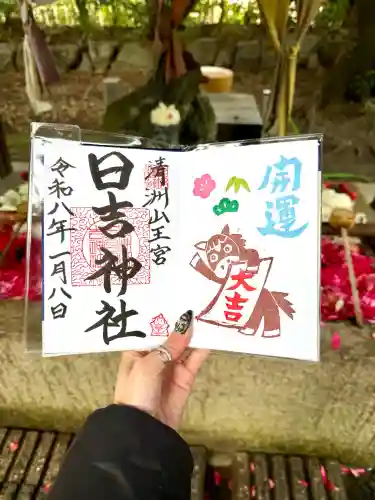 開運
大吉
清洲山王宮
日吉神社
令和八年一月八日